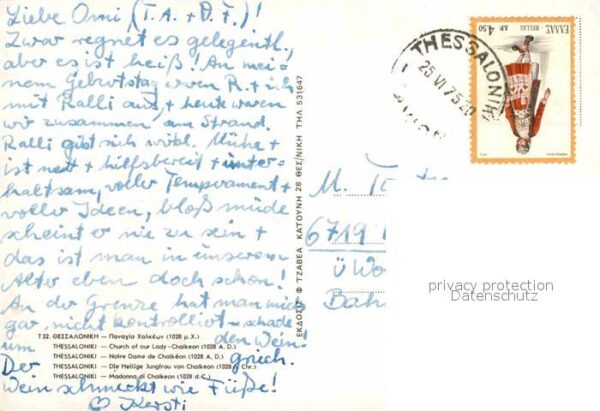 Liebe Omi, (T. A. + D. F.)!
Zwar regnet es gelegentl.,
aber es ist heiß! An mei-
nem Geburtstag waren R. + ich
mit Ralli aus, + heute waren
wir zusammen am Strand.
Ralli gibt sich wirkl. Mühe +
ist nett + hilfsbereit + unter-
haltsam, voller Temperament +
voller Ideen, bloß müde
scheint er nie zu sein +
das ist man in unserem
Alter eben doch schon!
An der Grenze hat man mich
gar nicht kontrolliert – schade
um den Wein!
Der griech.
Wein schmeckt wie Füße!
Kersti
T 32. ΘΕΣΣΑΛΟΝΙΚΗ — Παναγία Χαλκέων (1028 μ. Χ.)
THESSALONIKI — Church of our Lady - Chalkeon (1028 A. D.)
THESSALONIKI — Notre Dame de Chalkéon (1028 A. D.)
THESSALONIKI — Die Heilige Jungfrau von Chalkeon (1028 n. Chr.)
THESSALONIKI — Madonna di Chalkeon (1028 d. C.)
ΕΚΔΟΣΙΣ Φ ΤΖΑΒΕΑ ΚΑΤΟΥΝΗ 28 ΘΕΣ/ΝΙΚΗ ΤΗΛ 531647
THESSALONIKI
25 VI 75 20
ΕΛΛΑΣ - HELLAS ΔΡ 4.50
M.
6719
ü Wo
Bah
privacy protection
Datenschutz